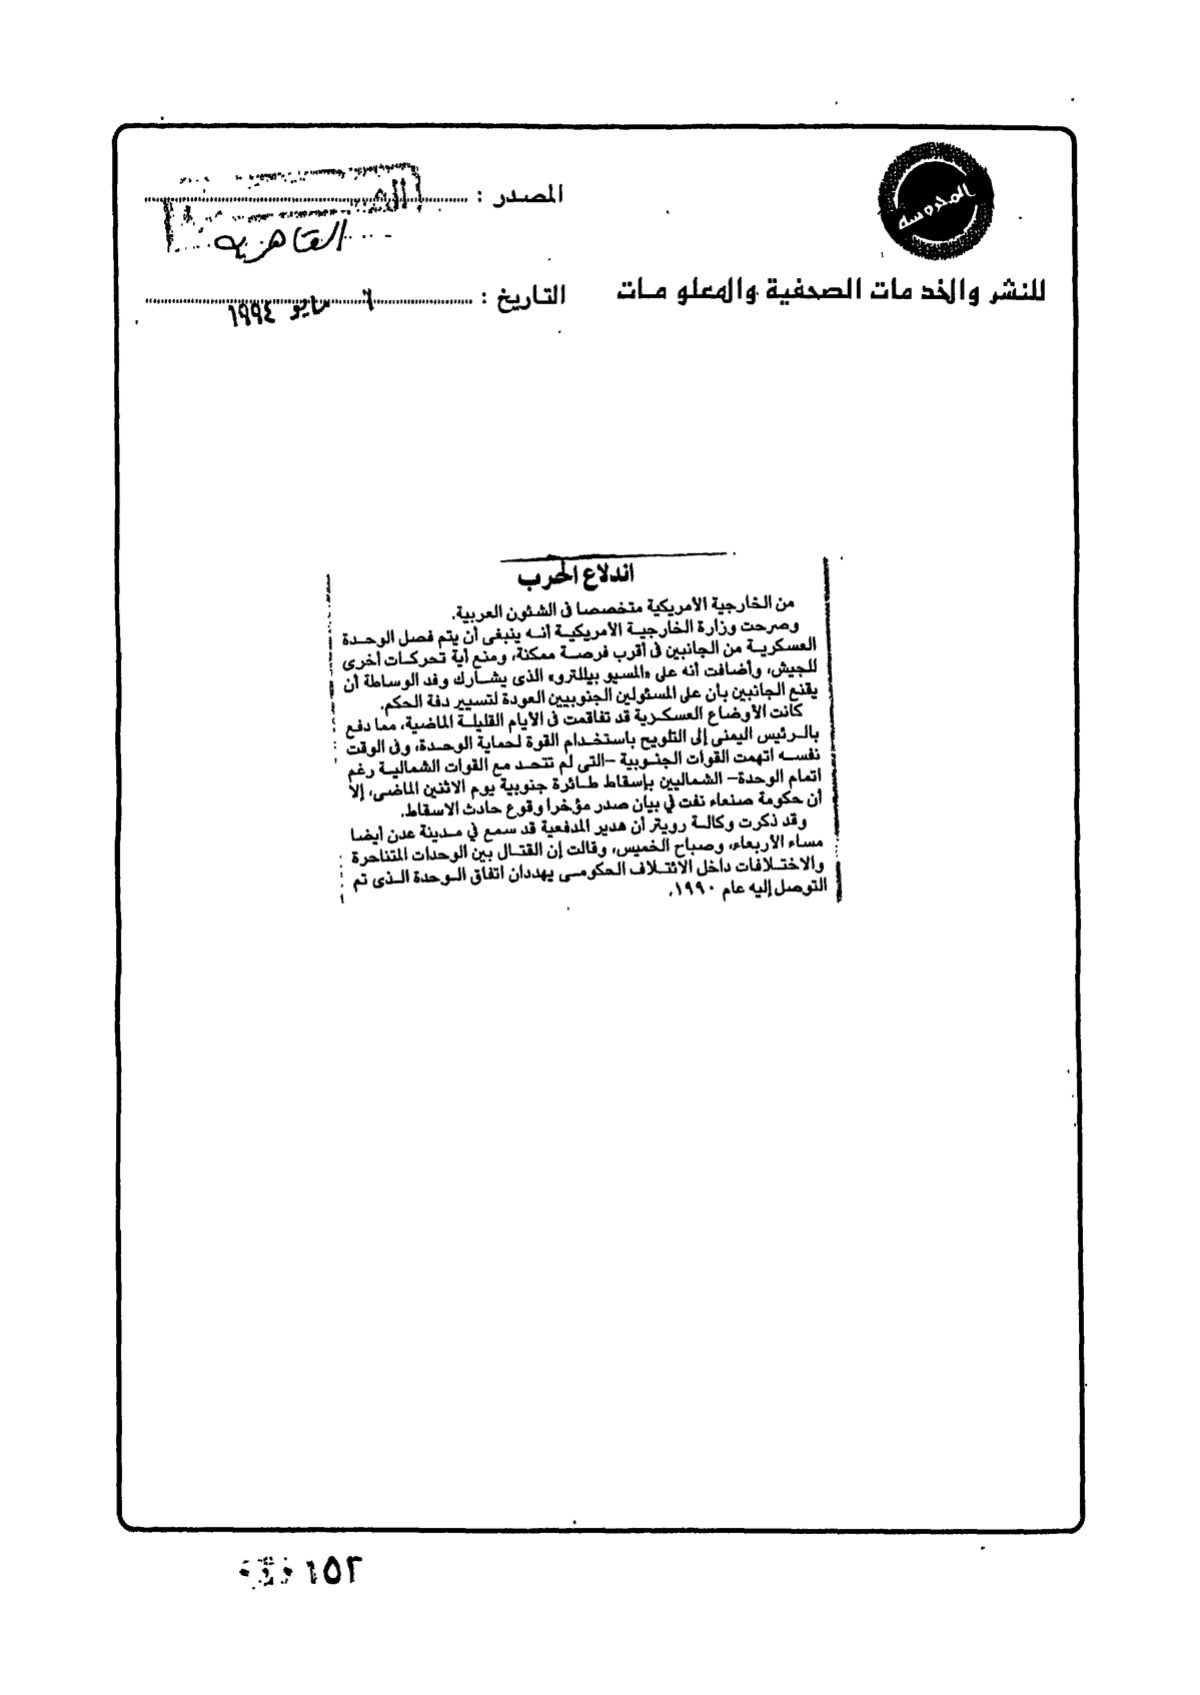 المحروسة
للنشر والخدمات الصحفية والمعلومات
المصدر :
القاهرية
التاريخ : ٦ مايو ١٩٩٤
اندلاع الحرب
من الخارجية الأمريكية متخصصا فى الشئون العربية.
وصرحت وزارة الخارجية الأمريكية أنه ينبغى أن يتم فصل الوحدة
العسكرية من الجانبين فى أقرب فرصة ممكنة، ومنع أية تحركات أخرى
للجيش، وأضافت أنه على «المسيو بيللترو» الذى يشارك وفد الوساطة أن
يقنع الجانبين بأن على المسئولين الجنوبيين العودة لتسيير دفة الحكم.
كانت الأوضاع العسكرية قد تفاقمت فى الأيام القليلة الماضية، مما دفع
بالرئيس اليمنى إلى التلويح باستخدام القوة لحماية الوحدة، وفى الوقت
نفسه اتهمت القوات الجنوبية –التى لم تتحد مع القوات الشمالية رغم
اتمام الوحدة– الشماليين بإسقاط طائرة جنوبية يوم الاثنين الماضى، إلا
أن حكومة صنعاء نفت في بيان صدر مؤخرا وقوع حادث الاسقاط.
وقد ذكرت وكالة رويتر أن هدير المدفعية قد سمع في مدينة عدن أيضا
مساء الأربعاء، وصباح الخميس، وقالت إن القتال بين الوحدات المتناحرة
والاختلافات داخل الائتلاف الحكومى يهددان اتفاق الوحدة الذى تم
التوصل إليه عام ١٩٩٠.
١٥٢